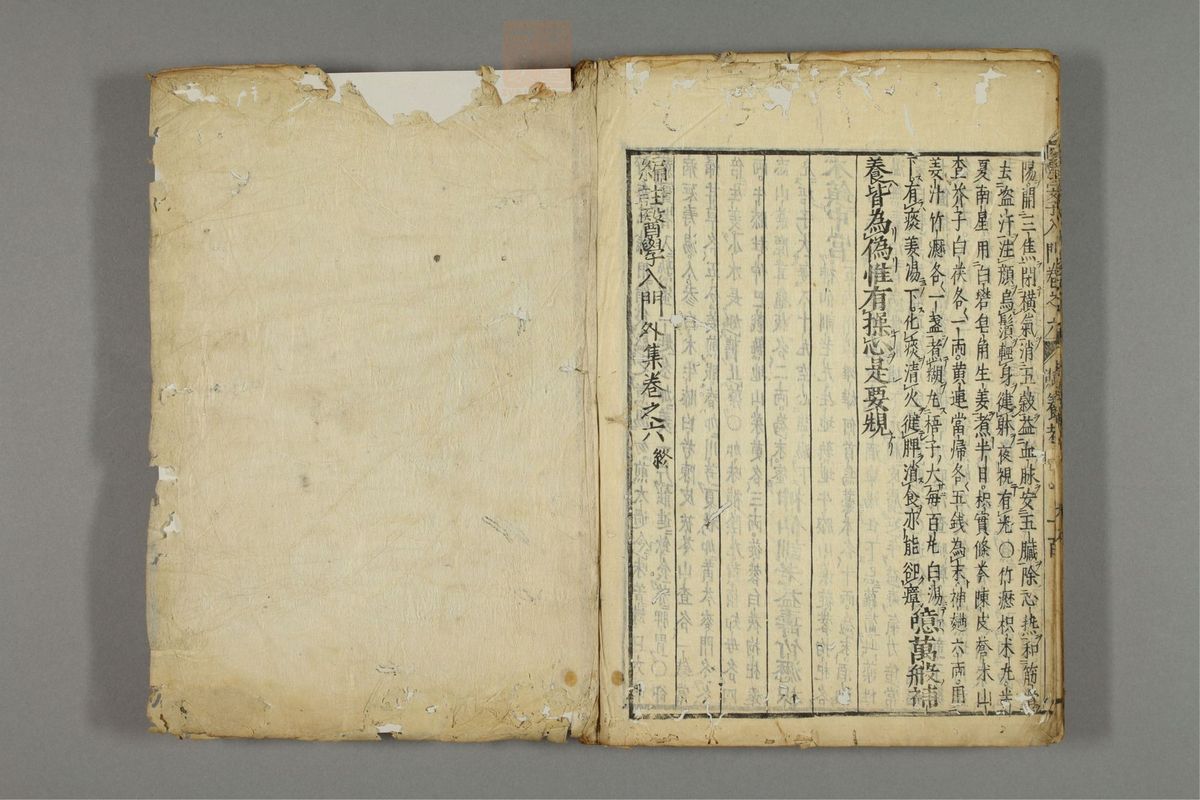 陽開三焦閉横氣消五穀益血脉安五臓除心熱和筋
去盗汗注顔烏鬚輕身健躰夜視有光○竹瀝枳朮丸半
夏南星用白礬皂角生姜煮半日枳實條芩陳皮蒼朮山
査芥子白茯各一両黄連當歸各五銭為末神麹六両用
姜汁竹瀝各一盞煮糊丸梧子大毎百丸白湯
下有痰姜湯下化痰清火健脾消食亦能卻瘴噫萬般補
養皆為偽惟有操心是要規
編註醫學入門外集巻之六 終
入門巻之六